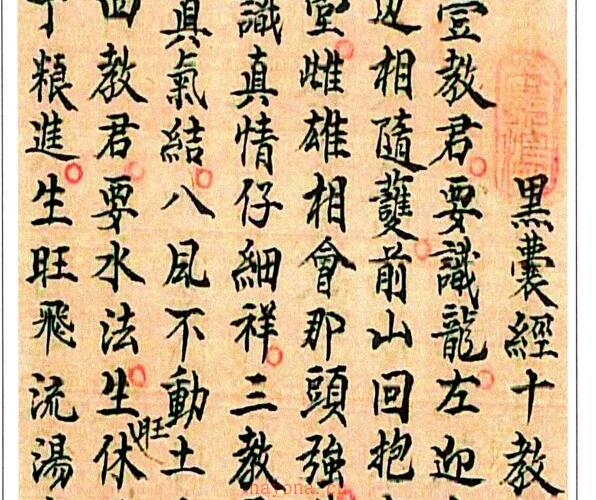 黑囊經十教
壹教君要識龍左迎
边相隨䕶前山回抱
堂雌雄相會那頭強
識真情仔細祥三教
真氣結八風不動土
四教君要水法生旺休
丁粮進生旺飛流湯
nayona.cn